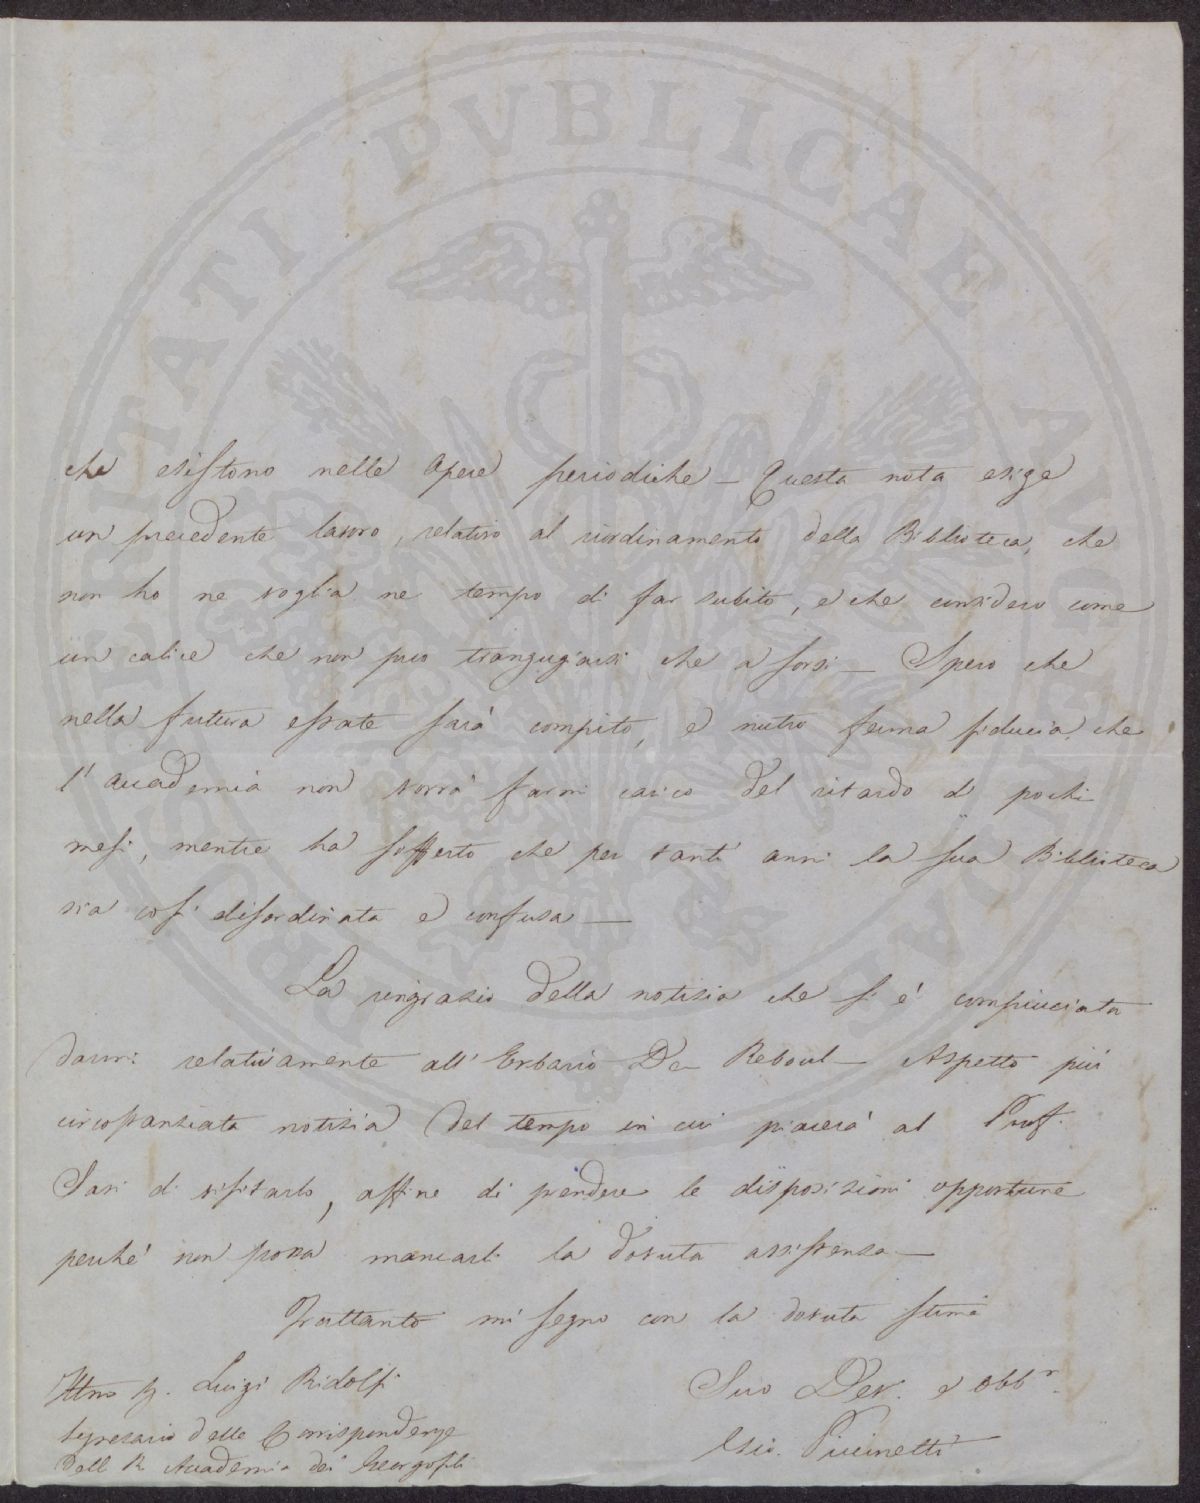 PROSPERITATI PUBLICAE AUGENDAE
che esistono nelle Opere periodiche — Questa nota esige
un precedente lavoro, relativo al riordinamento della Biblioteca, che
non ho ne voglia ne tempo di far subito, e che considero come
un calice che non puo trangugiarsi che a sorsi — Spero che
nella futura estate sarà compito, e nutro ferma fiducia che
l'Accademia non vorrà farmi carico del ritardo di pochi
mesi, mentre ha sofferto che per tanti anni la sua Biblioteca
sia così disordinata e confusa —
La ringrazio della notizia che si è compiaciuta
darmi relativamente all'Erbario De Reboul — Aspetto più
circostanziata notizia del tempo in cui piacerà al Prof.
Savi di visitarlo, affine di prendere le disposizioni opportune
perchè non possa mancarli la dovuta assistenza —
Frattanto mi segno con la dovuta stima
Suo Dev. e Obb.
Piccinetti
Luigi Ridolfi
Segretario delle Corrispondenze
dell R Accademia dei Georgofili